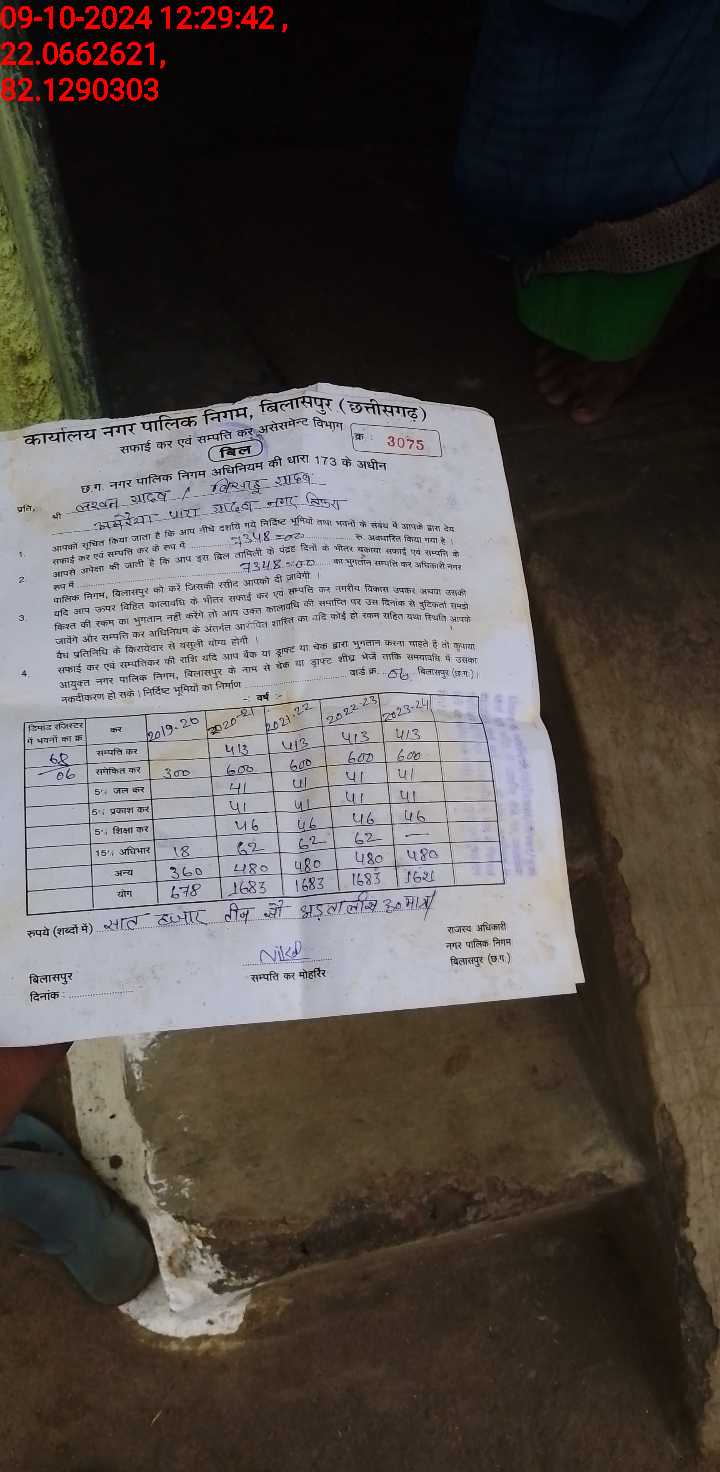 09-10-2024 12:29:42 ,
22.0662621,
82.1290303
कार्यालय नगर पालिक निगम, बिलासपुर (छत्तीसगढ़)
सफाई कर एवं सम्पत्ति कर असेसमेन्ट विभाग
क्र : 3075
बिल
छ.ग. नगर पालिक निगम अधिनियम की धारा 173 के अधीन
प्रति,
श्री लखन यादव /
पारा यादव नगर
1. आपको सूचित किया जाता है कि आप नीचे दर्शाये गये निर्दिष्ट भूमियों तथा भवनों के संबंध में आपके द्वारा देय
सफाई कर एवं सम्पत्ति कर के रूप में 7348=00 रु. अवधारित किया गया है ।
2. आपसे अपेक्षा की जाती है कि आप इस बिल तामिली के पंद्रह दिनों के भीतर बकाया सफाई एवं सम्पत्ति के
रूप में 7348=00 का भुगतान सम्पत्ति कर अधिकारी नगर
पालिक निगम, बिलासपुर को करें जिसकी रसीद आपको दी जावेगी ।
3. यदि आप ऊपर विहित कालावधि के भीतर सफाई कर एवं सम्पत्ति कर नगरीय विकास उपकर अथवा उसकी
किस्त की रकम का भुगतान नहीं करेंगे तो आप उक्त कालावधि की समाप्ति पर उस दिनांक से त्रुटिकर्ता समझे
जावेंगे और सम्पत्ति कर अधिनियम के अंतर्गत आरोपित शास्ति का यदि कोई हो रकम सहित यथा स्थिति आपके
वैध प्रतिनिधि के किरायेदार से वसूली योग्य होगी ।
4. सफाई कर एवं सम्पत्तिकर की राशि यदि आप बैंक या ड्राफ्ट या चेक द्वारा भुगतान करना चाहते है तो कृपया
आयुक्त नगर पालिक निगम, बिलासपुर के नाम से चेक या ड्राफ्ट शीघ्र भेजें ताकि समयावधि में उसका
नकदीकरण हो सके। निर्दिष्ट भूमियों का निर्माण वार्ड क्र. 06 बिलासपुर (छ.ग.)।
-: वर्ष :-
डिमांड रजिस्टर में भवनों का क्र कर 2019-20 2020-21 2021-22 2022-23 2023-24
68 सम्पत्ति कर 413 413 413 413
06 समेकित कर 300 600 600 600 600
5% जल कर 41 41 41 41
5% प्रकाश कर 41 41 41 41
5% शिक्षा कर 46 46 46 46
15% अधिभार 18 62 62 62 —
अन्य 360 480 480 480 480
योग 678 1683 1683 1683 1621
रुपये (शब्दों में) सात हजार तीन सौ अड़तालीस रु० मात्र
बिलासपुर
दिनांक :
सम्पत्ति कर मोहर्रिर
राजस्व अधिकारी
नगर पालिक निगम
बिलासपुर (छ.ग.)